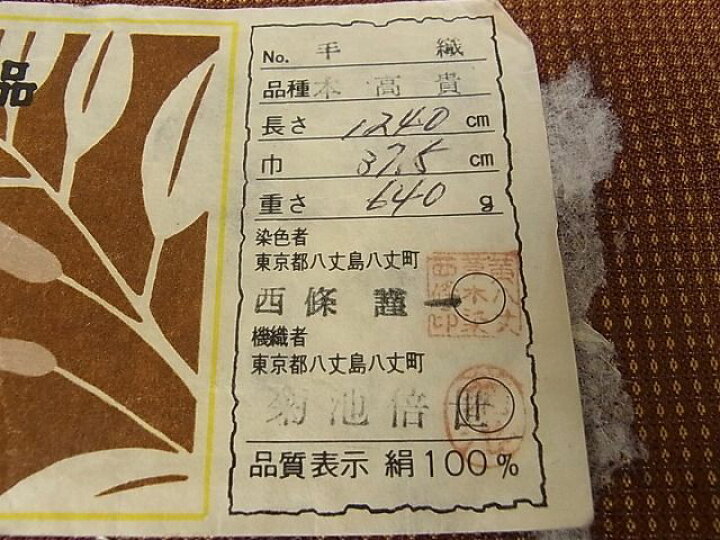 品
No. 手織
品種 本高貴
長さ 1240 cm
巾 37.5 cm
重さ 640 g
染色者
東京都八丈島八丈町
西條 謹一
機織者
東京都八丈島八丈町
菊池倍世
品質表示 絹100%